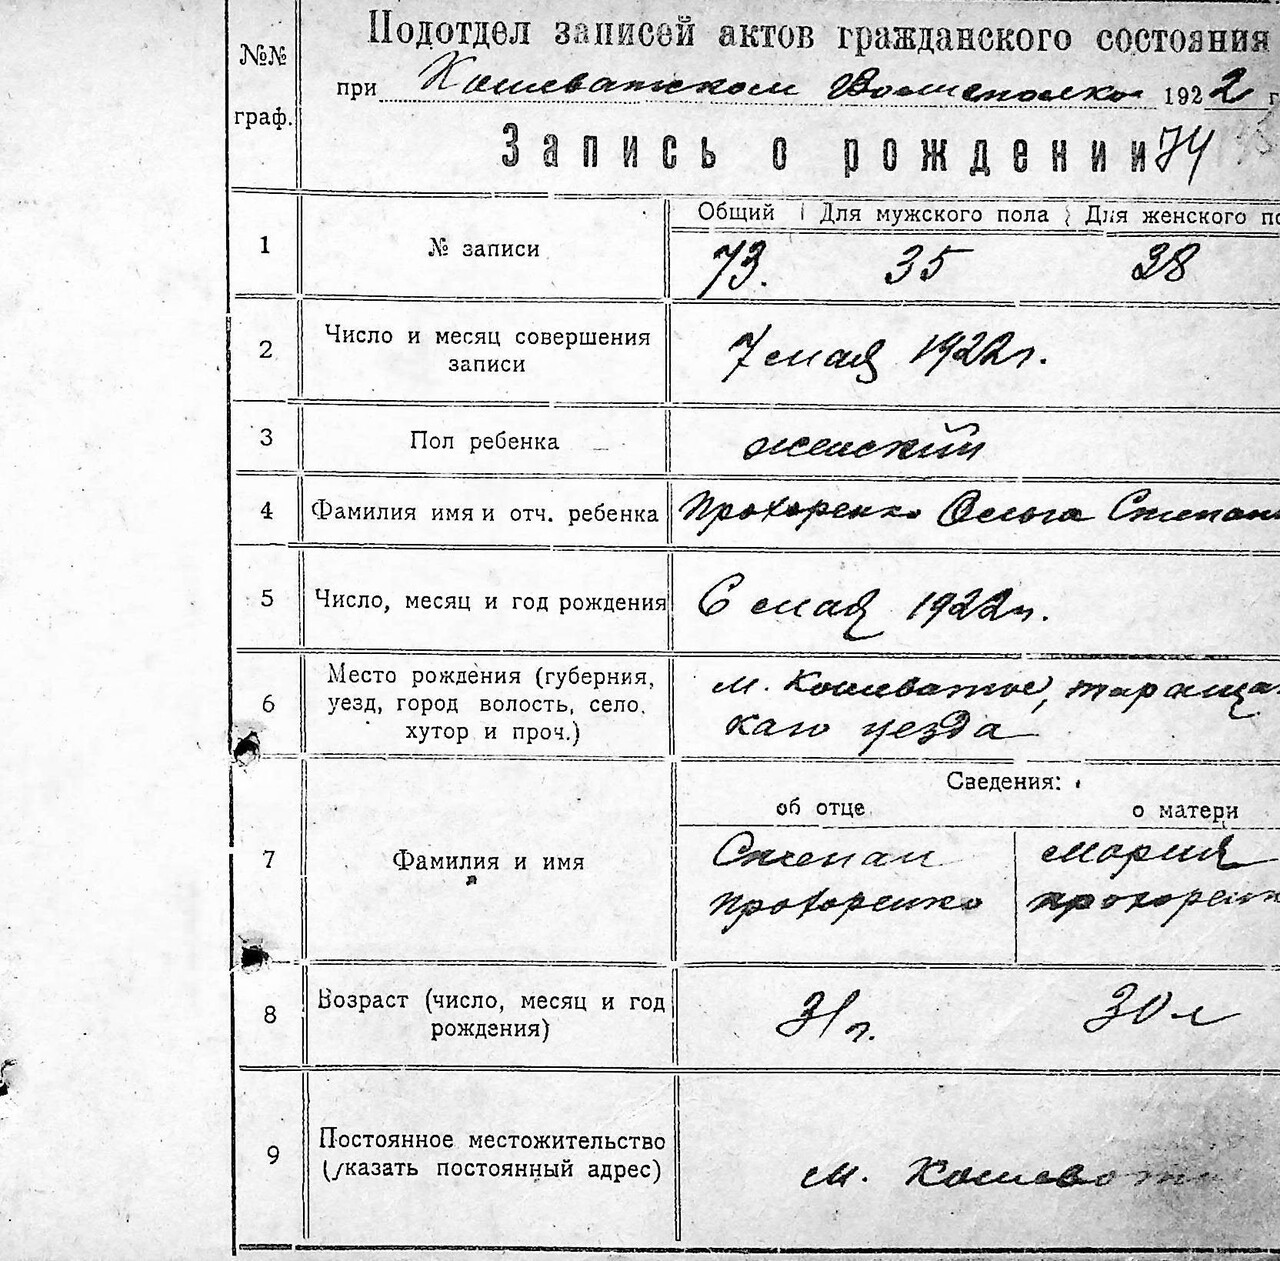 №№
граф.
Подотдел записей актов гражданского состояния
при Кошеватском Волисполко 1922 г
Запись о рождении 74
Общий Для мужского пола Для женского по
1 № записи 73. 35 38
2 Число и месяц совершения
записи
7 мая 1922 г.
3 Пол ребенка женский
4 Фамилия имя и отч. ребенка Прохоренко Ольга Степан
5 Число, месяц и год рождения 6 мая 1922 г.
6 Место рождения (губерния,
уезд, город волость, село,
хутор и проч.)
м. Кошеватое, таращан
каго уезда
Сведения:
об отце о матери
7 Фамилия и имя
Степан Мария
Прохоренко прохоренк
8 Возраст (число, месяц и год
рождения)
31 г. 30 л
9 Постоянное местожительство
(указать постоянный адрес)
м. Кошеват